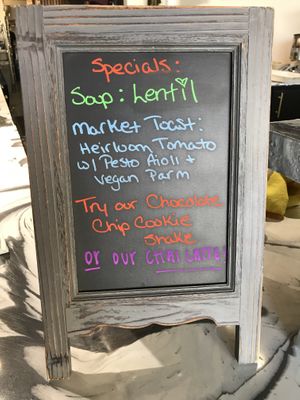 Specials:
Soup: Lentil
Market Toast:
Heirloom Tomato
w/ Pesto Aioli +
Vegan Parm
Try our Chocolate
Chip Cookie
Shake
or our CHAI LATTE!